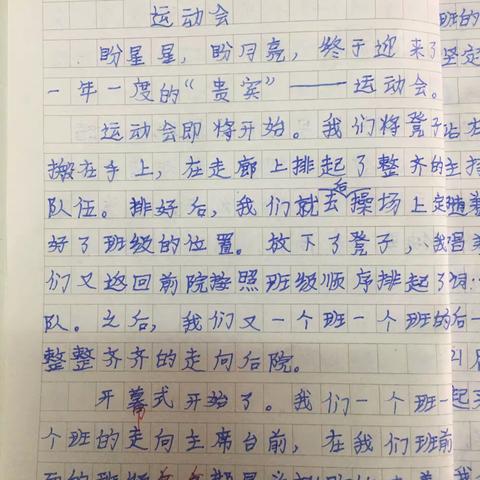 运动会
盼星星，盼月亮，终于迎来了
一年一度的“贵宾”——运动会。
运动会即将开始。我们将凳子
搬在手上，在走廊上排起了整齐的
队伍。排好后，我们就去后操场上
好了班级的位置。放下了凳子，我
们又返回前院按照班级顺序排起了
队。之后，我们又一个班一个班的
整整齐齐的走向后院。
开幕式开始了。我们一个班一
个班的走向主席台前，在我们班前